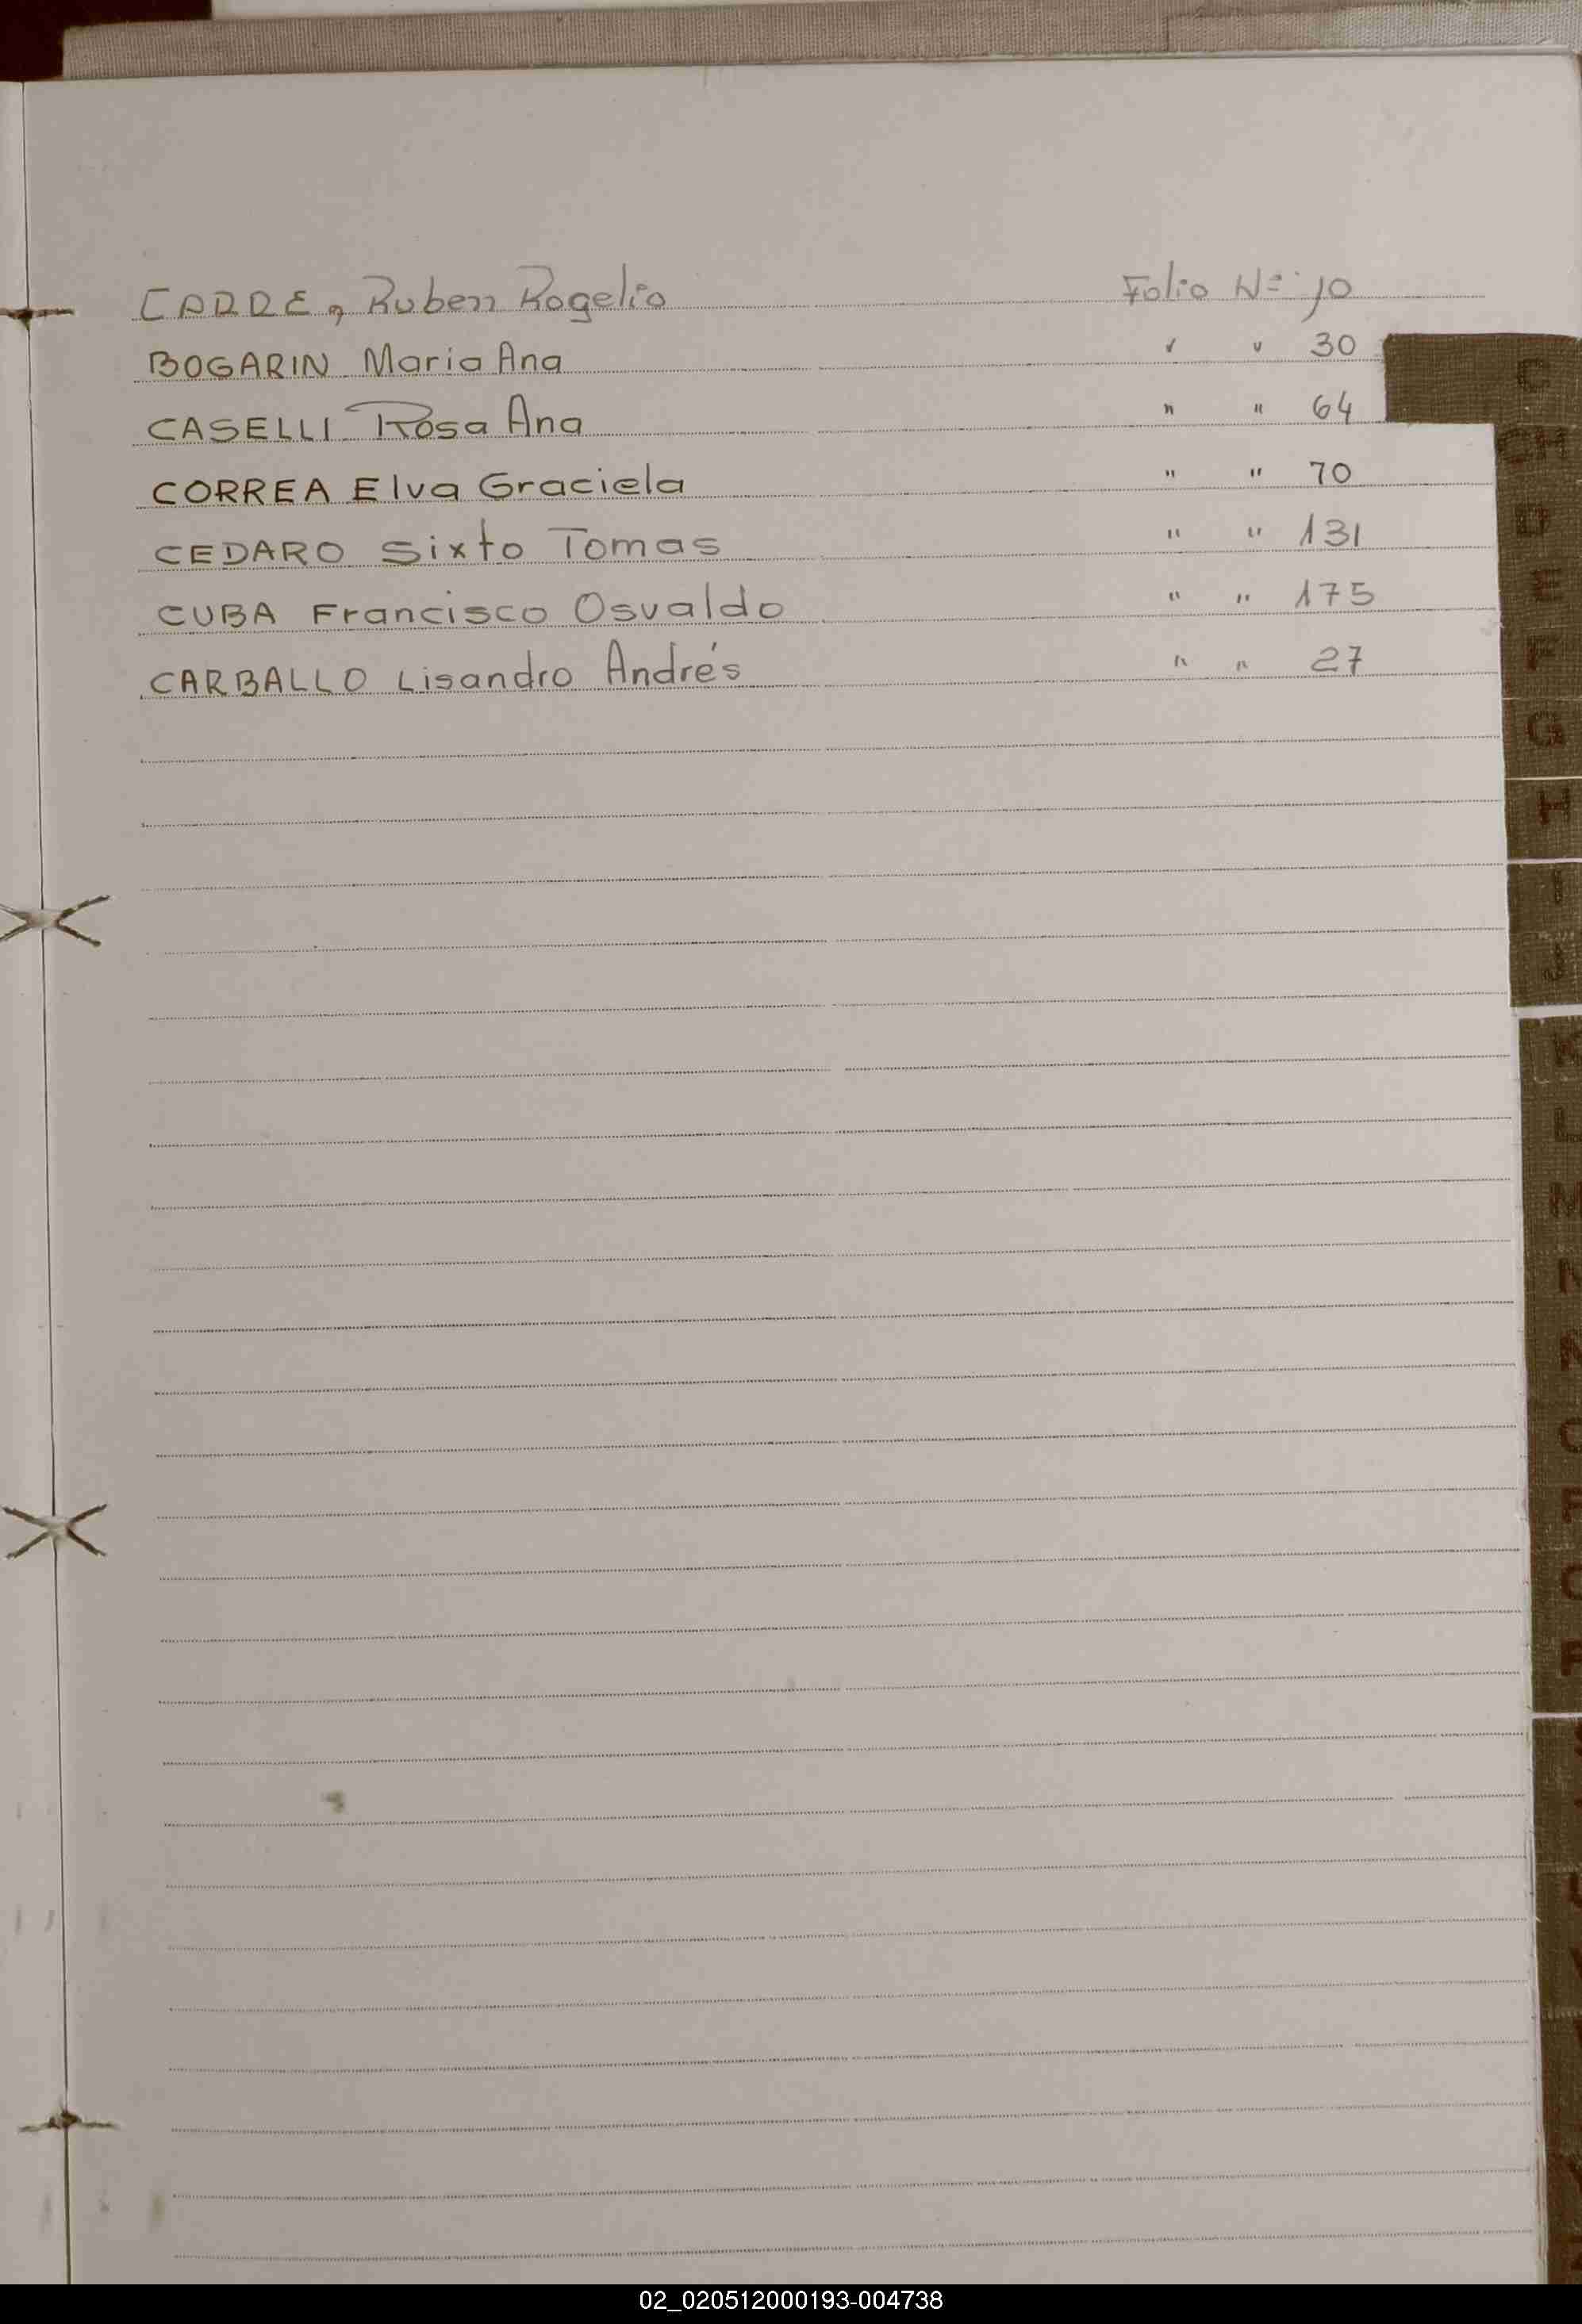 CARRE, Ruben Rogelio Folio Nº 10
BOGARIN Maria Ana " " 30
CASELLI Rosa Ana " " 64
CORREA Elva Graciela " " 70
CEDARO Sixto Tomas " " 131
CUBA Francisco Osvaldo " " 175
CARBALLO Lisandro Andrés " " 27
C
CH
D
E
F
G
H
I
J
K
L
M
N
02_020512000193-004738